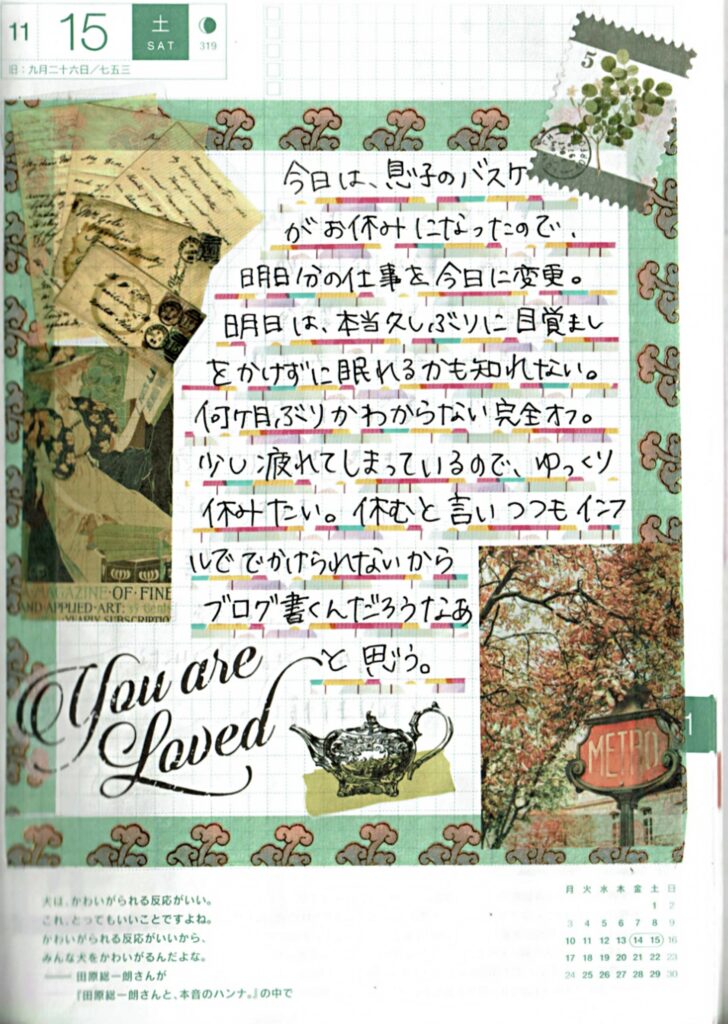 11 15 土 SAT 319
旧:九月二十六日/七五三
5
今日は、息子のバスケ
がお休みになったので、
明日分の仕事を今日に変更。
明日は、本当久しぶりに目覚まし
をかけずに眠れるかも知れない。
何ケ月ぶりかわからない完全オフ。
少し疲れてしまっているので、ゆっくり
休みたい。休むと言いつつもインフ
ルででかけられないから
ブログ書くんだろうなあ
と思う。
MAGAZINE·OF·FINE
AND APPLIED·ART:
YEARLY SUBSCRIPTIO
You are
Loved
METRO
1
犬は、かわいがられる反応がいい。
これ、とってもいいことですよね。
かわいがられる反応がいいから、
みんな犬をかわいがるんだよな。
―― 田原総一朗さんが
『田原総一朗さんと、本音のハンナ。』の中で
月 火 水 木 金 土 日
1 2
3 4 5 6 7 8 9
10 11 12 13 14 15 16
17 18 19 20 21 22 23
24 25 26 27 28 29 30